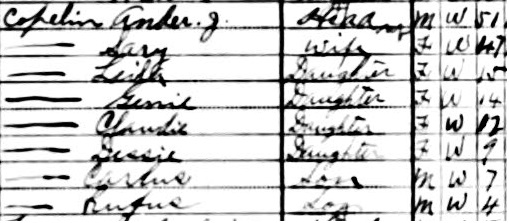 Copelin Ander. J. Head M W 51
— Sary Wife F W 47
— Daughter F W 15
— Daughter F W 14
— Claudie Daughter F W 12
— Dessie Daughter F W 9
— Son M W 7
— Rufus Son M W 4